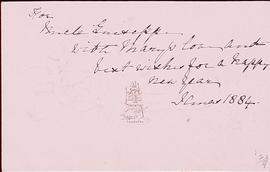 For
Uncle Guiseppe
with Mary's love and
best wishes for a happy
new year
Xmas 1884.